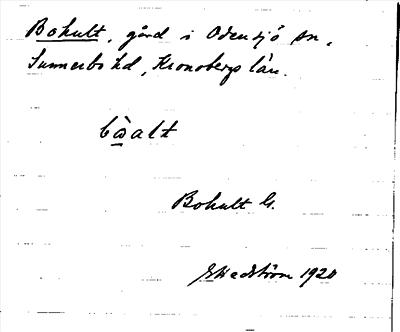 Bohult, gård i Odensjö sn,
Sunnerbo hd, Kronobergs län.
Bohult G.
1920